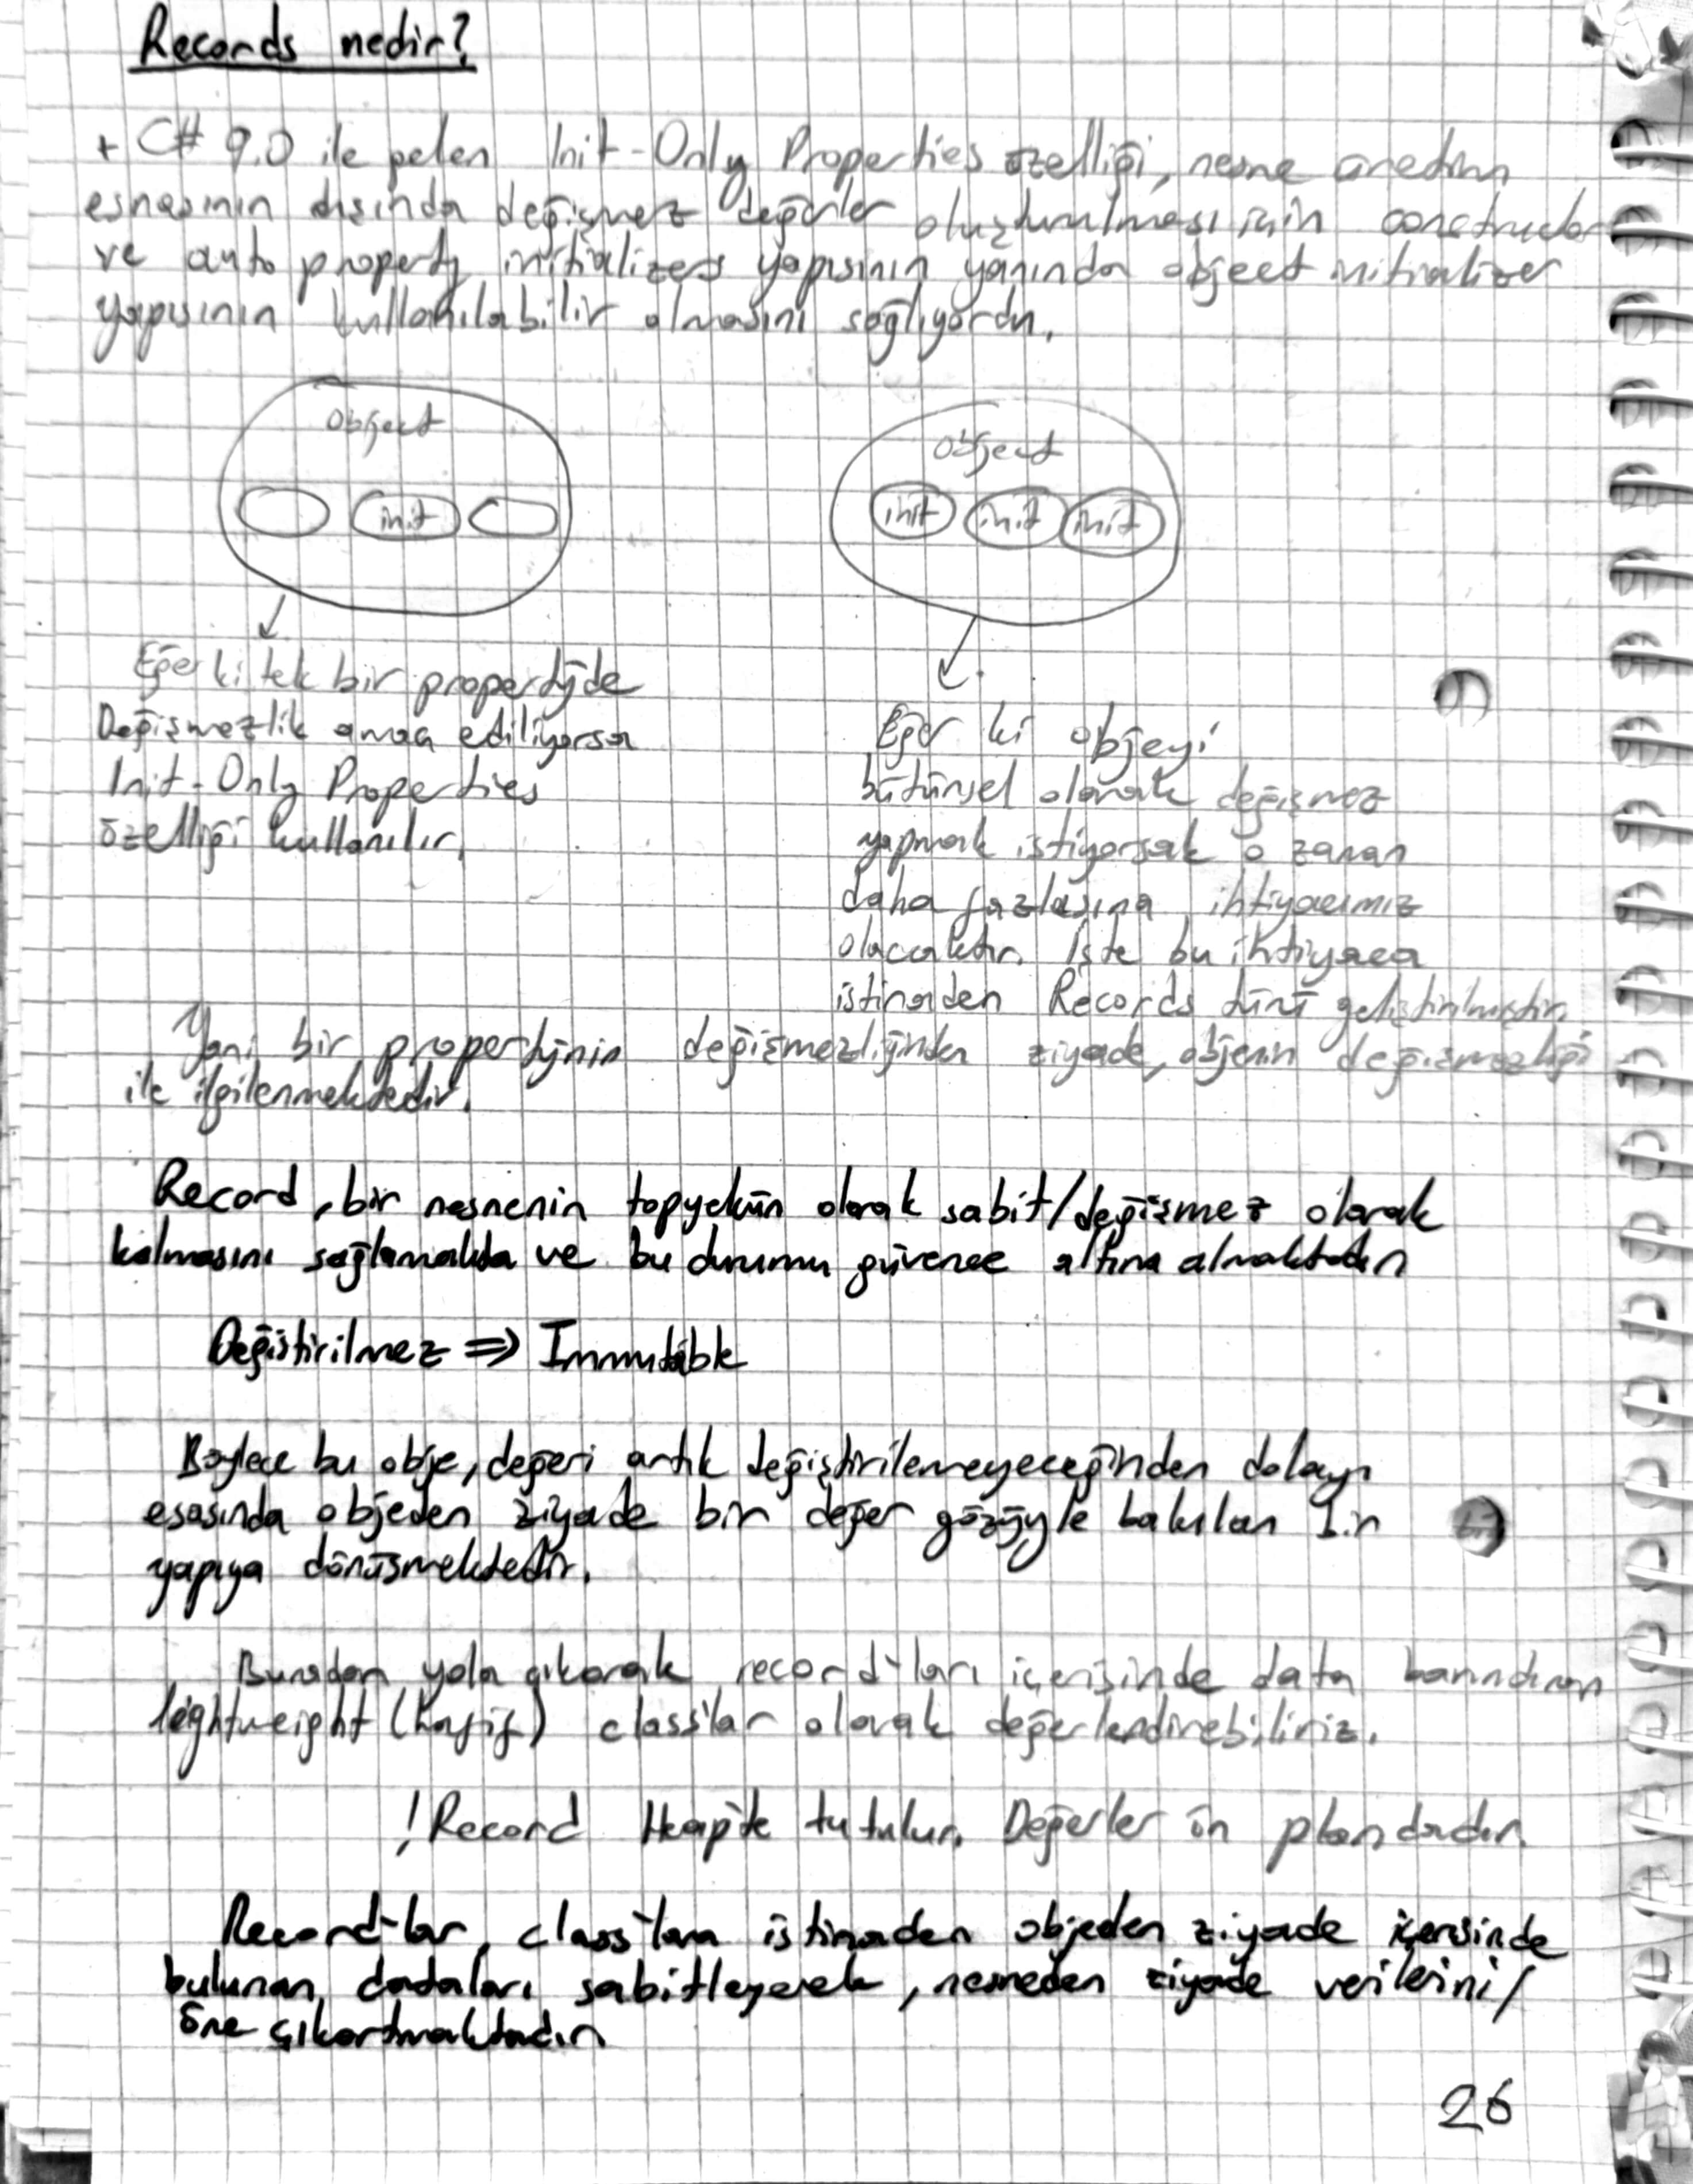 Records nedir?
+ C# 9.0 ile gelen Init-Only Properties özelliği, nesne üretim
esnasının dışında değişmez değerler oluşturulması için constructor
ve auto property initializers yapısının yanında object initializer
yapısının kullanılabilir olmasını sağlıyordu.
object
init
Eğer ki tek bir property'de
Değişmezlik amaç ediliyorsa
Init-Only Properties
özelliği kullanılır.
object
init init init
Eğer ki objeyi
bütünsel olarak değişmez
yapmak istiyorsak o zaman
daha fazlasına ihtiyacımız
olacaktır. İşte bu ihtiyaca
istinaden Records türü geliştirilmiştir.
Yani bir property'nin değişmezliğinden ziyade, objenin değişmezliği
ile ilgilenmektedir.
Record, bir nesnenin topyekün olarak sabit/değişmez olarak
kalmasını sağlamakta ve bu durumu güvence altına almaktadır
Değiştirilmez => Immutable
Böylece bu obje, değeri artık değiştirilemeyeceğinden dolayı
esasında objeden ziyade bir değer gözüyle bakılan bir
yapıya dönüşmektedir.
Buradan yola çıkarak record'ları içerisinde data barındıran
lightweight (hafif) class'lar olarak değerlendirebiliriz.
! Record Heap'te tutulur. Değerler ön plandadır.
Record'lar, class'lara istinaden objeden ziyade içerisinde
bulunan dataları sabitleyerek, nesneden ziyade verilerini/
öne çıkartmaktadır
26